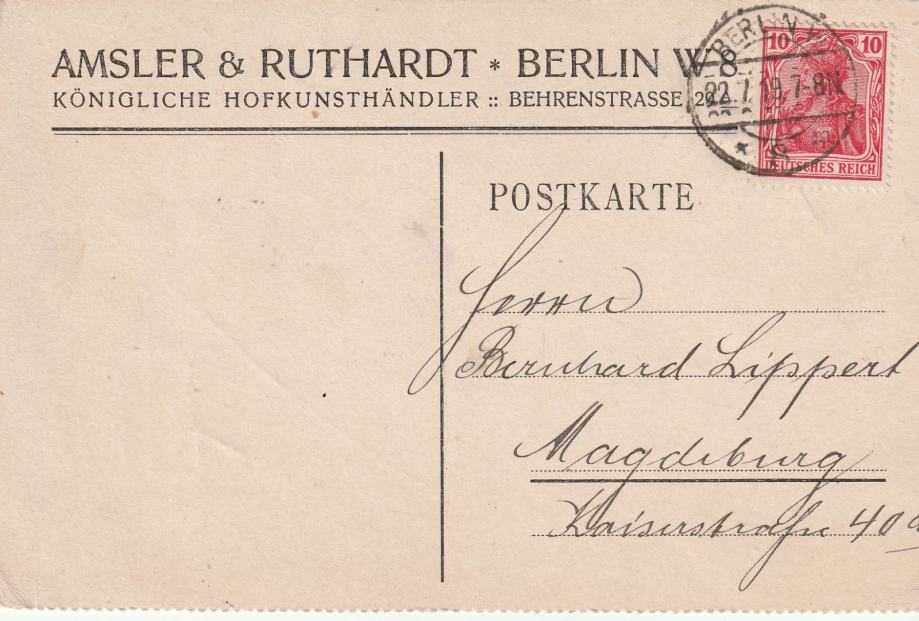 AMSLER & RUTHARDT * BERLIN W 8
KÖNIGLICHE HOFKUNSTHÄNDLER :: BEHRENSTRASSE
BERLIN
22.7.19.7-8N
* 8
10 10
DEUTSCHES REICH
POSTKARTE
Herrn
Bernhard Lippert
Magdeburg
Kaiserstraße 40a